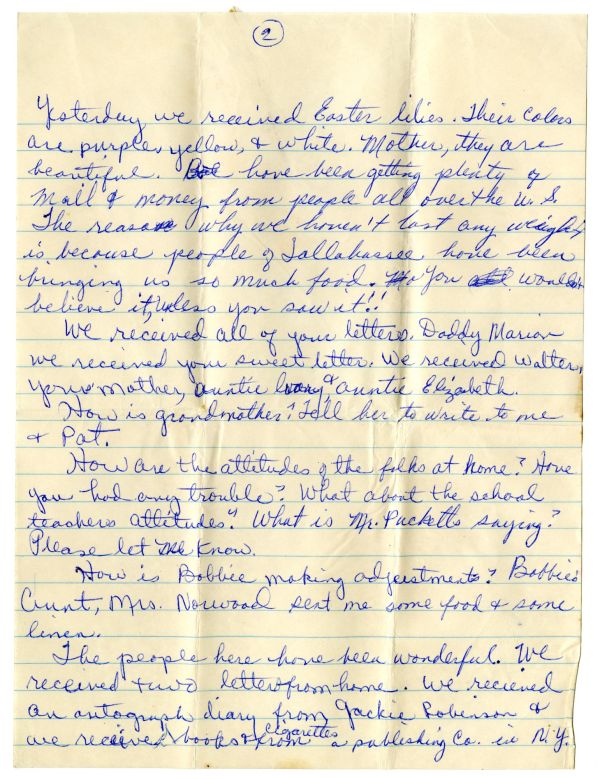 2
Yesterday we received Easter lilies. Their colors
are purple, yellow, & white. Mother, they are
beautiful. have been getting plenty of
mail & money from people all over the U.S.
The reason why we haven't lost any weight
is because people of Tallahassee have been
bringing us so much food. You wouldn't
believe it, unless you saw it!!
We received all of your letters. Daddy Marion
we received your sweet letter. We received Walter,
your mother, auntie & auntie Elizabeth.
How is grandmother? Tell her to write to me
& Pat.
How are the attitudes of the folks at home? Have
you had any trouble? What about the school
teachers attitudes? What is Mr. Puckett saying?
Please let me know.
How is Bobbie making adjustments? Bobbie's
Aunt, Mrs. Norwood sent me some food & some
linen.
The people here have been wonderful. We
received two letters from home. We recieved
an autograph diary from Jackie Robinson &
we received books & cigarettes from a publishing Co. in N.Y.